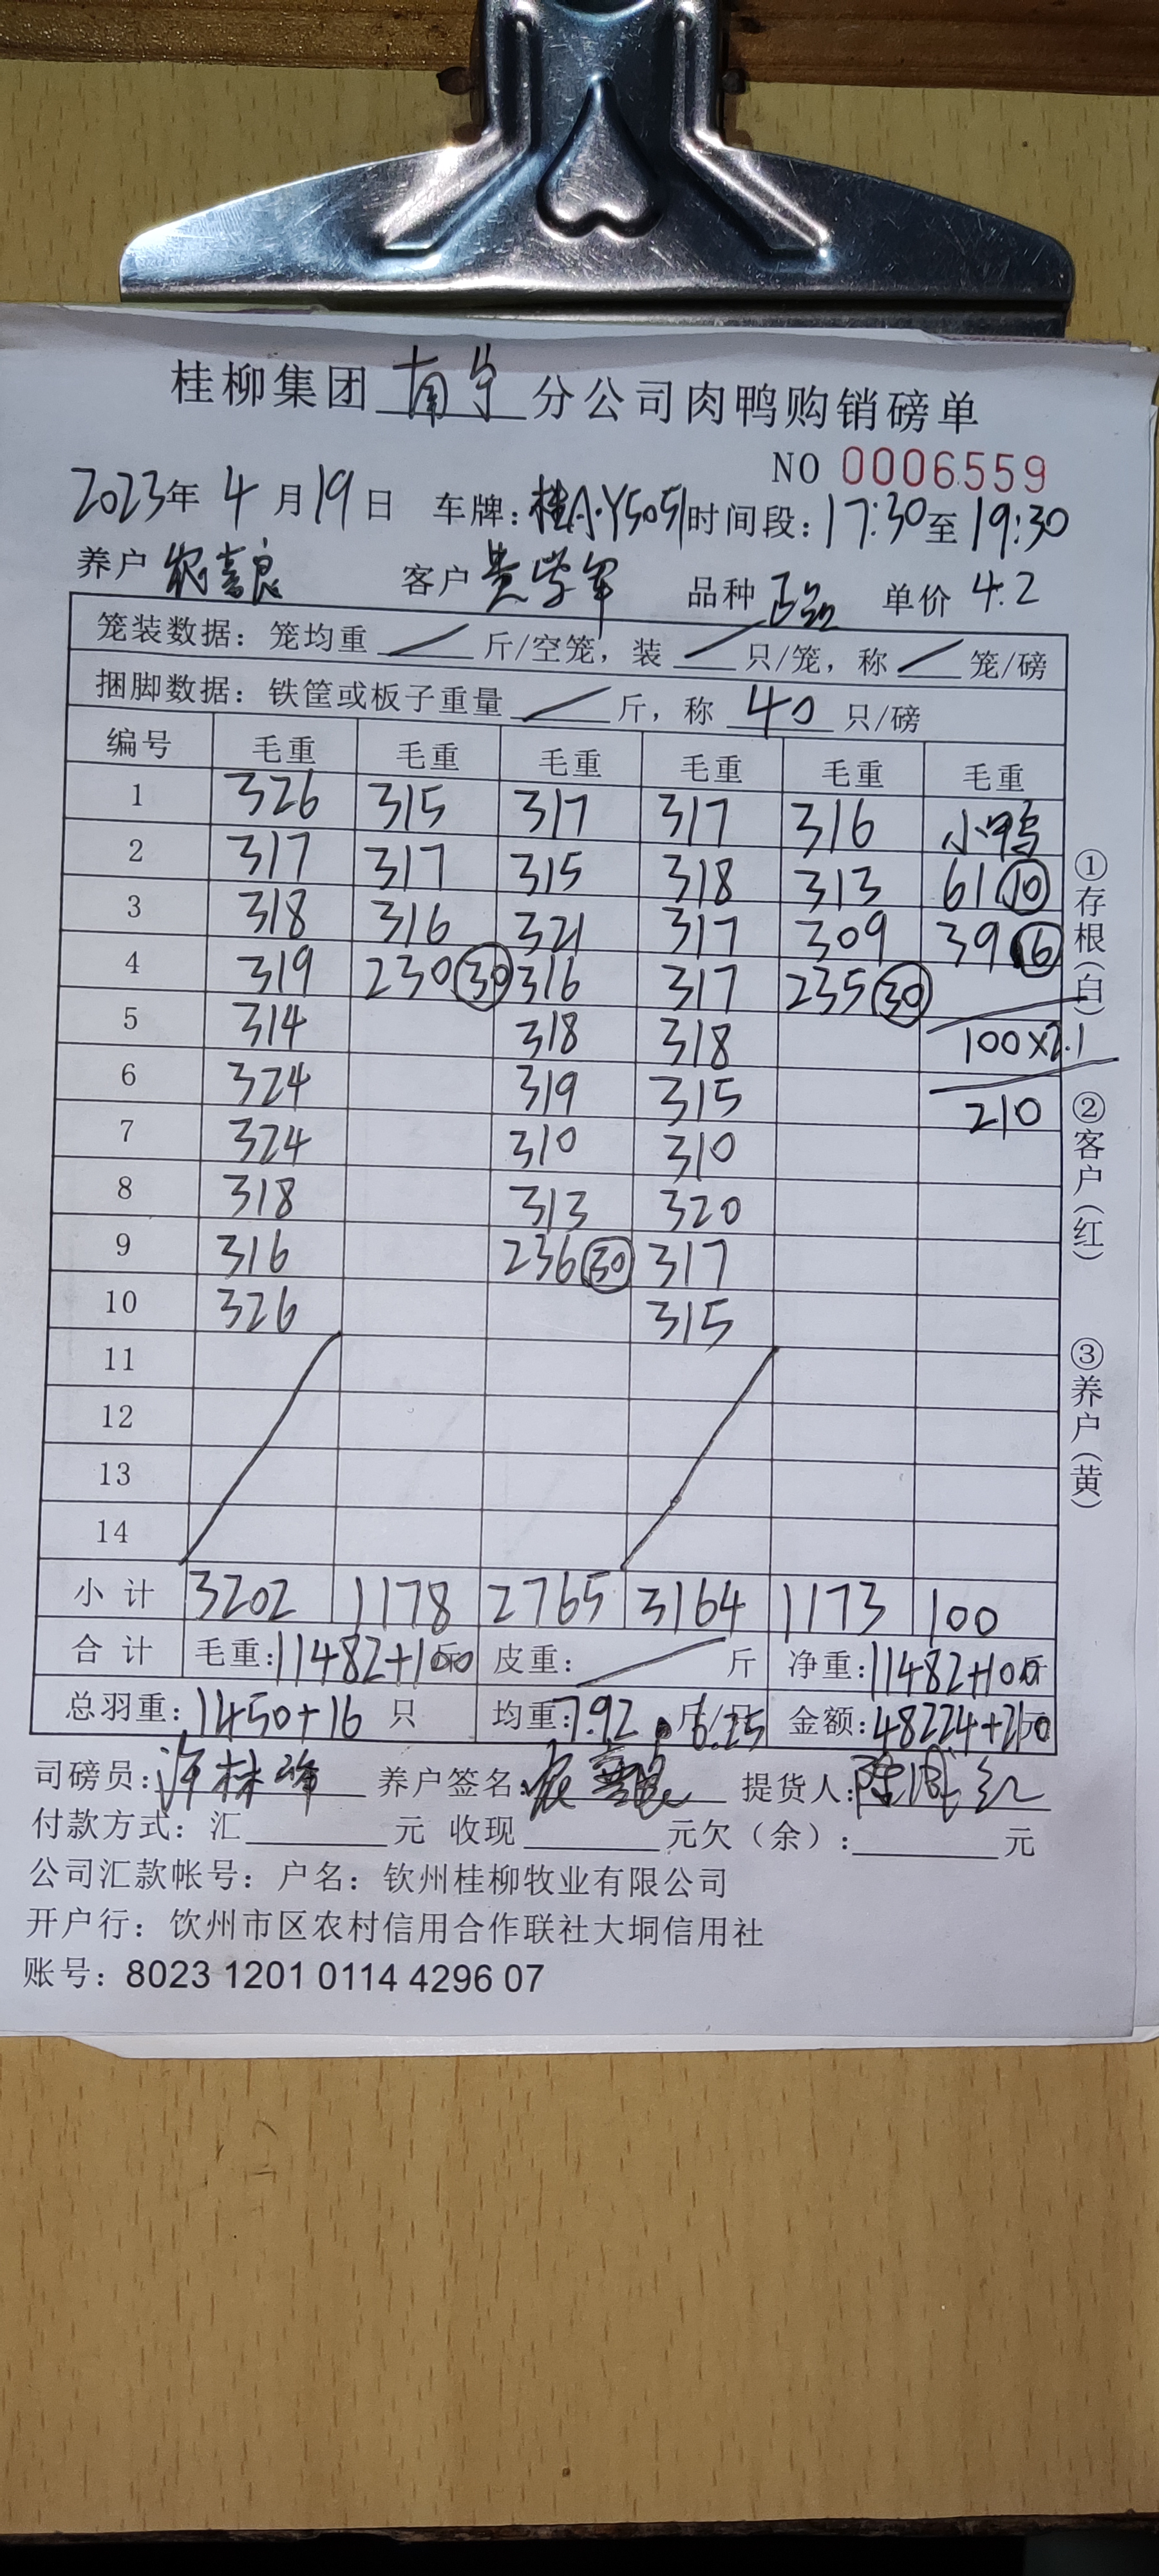 桂柳集团 南宁 分公司肉鸭购销磅单
NO 0006559
2023年 4 月 19 日 车牌:桂A·Y5051 时间段:17:30至19:30
养户 农喜良 客户 黄学军 品种 单价 4.2
笼装数据:笼均重 / 斤/空笼,装 / 只/笼,称 / 笼/磅
捆脚数据:铁筐或板子重量 / 斤,称 40 只/磅
编号 毛重 毛重 毛重 毛重 毛重 毛重
1 326 315 317 317 316 小鸭
2 317 317 315 318 313 61 ⑩
3 318 316 321 317 309 39 ⑥
4 319 230 ㉚ 316 317 235 ㉚
5 314 318 318 100×2.1
6 324 319 315 210
7 324 310 310
8 318 313 320
9 316 236 ㉚ 317
10 326 315
11
12
13
14
小计 3202 1178 2765 3164 1173 100
合计 毛重:11482+100斤 皮重: / 斤 净重:11482+100斤
总羽重:1450+16 只 均重:7.92 斤/6.25 金额:48224+210
司磅员:许林峰 养户签名:农喜良 提货人:
付款方式:汇 元 收现 元欠(余): 元
公司汇款帐号:户名:钦州桂柳牧业有限公司
开户行:饮州市区农村信用合作联社大垌信用社
账号:8023 1201 0114 4296 07
①存根(白)
②客户(红)
③养户(黄)